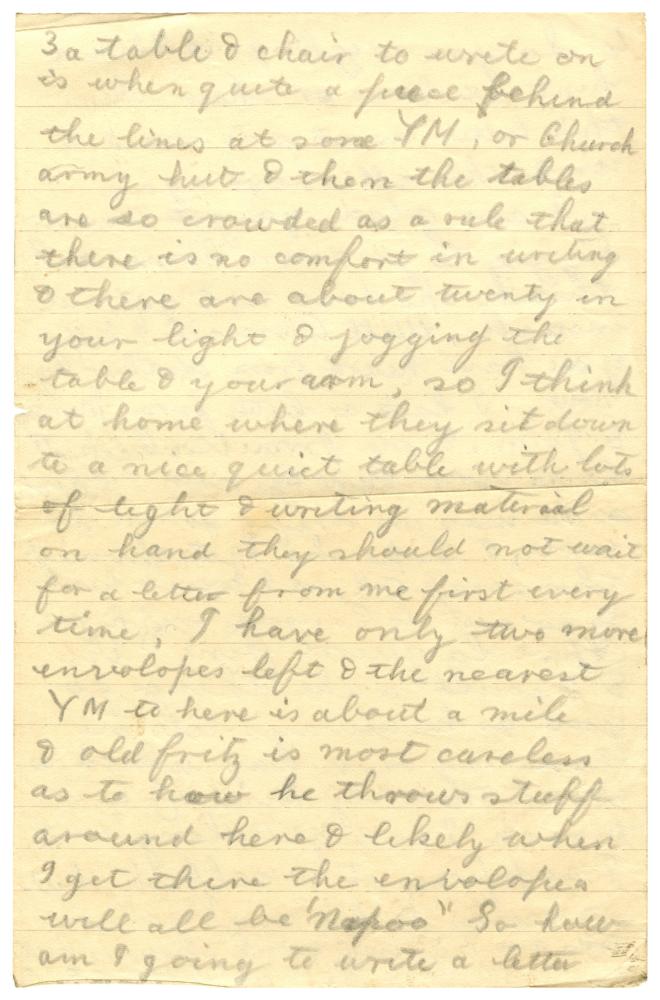 3 a table & chair to write on
is when quite a piece behind
the lines at some YM, or Church
army hut & then the tables
are so crowded as a rule that
there is no comfort in writing
& there are about twenty in
your light & jogging the
table & your arm, so I think
at home where they sit down
to a nice quiet table with lots
of light & writing material
on hand they should not wait
for a letter from me first every
time, I have only two more
envolopes left & the nearest
YM to here is about a mile
& old fritz is most careless
as to how he throws stuff
around here & likely when
I get there the envolopes
will all be "Napoo" So how
am I going to write a letter